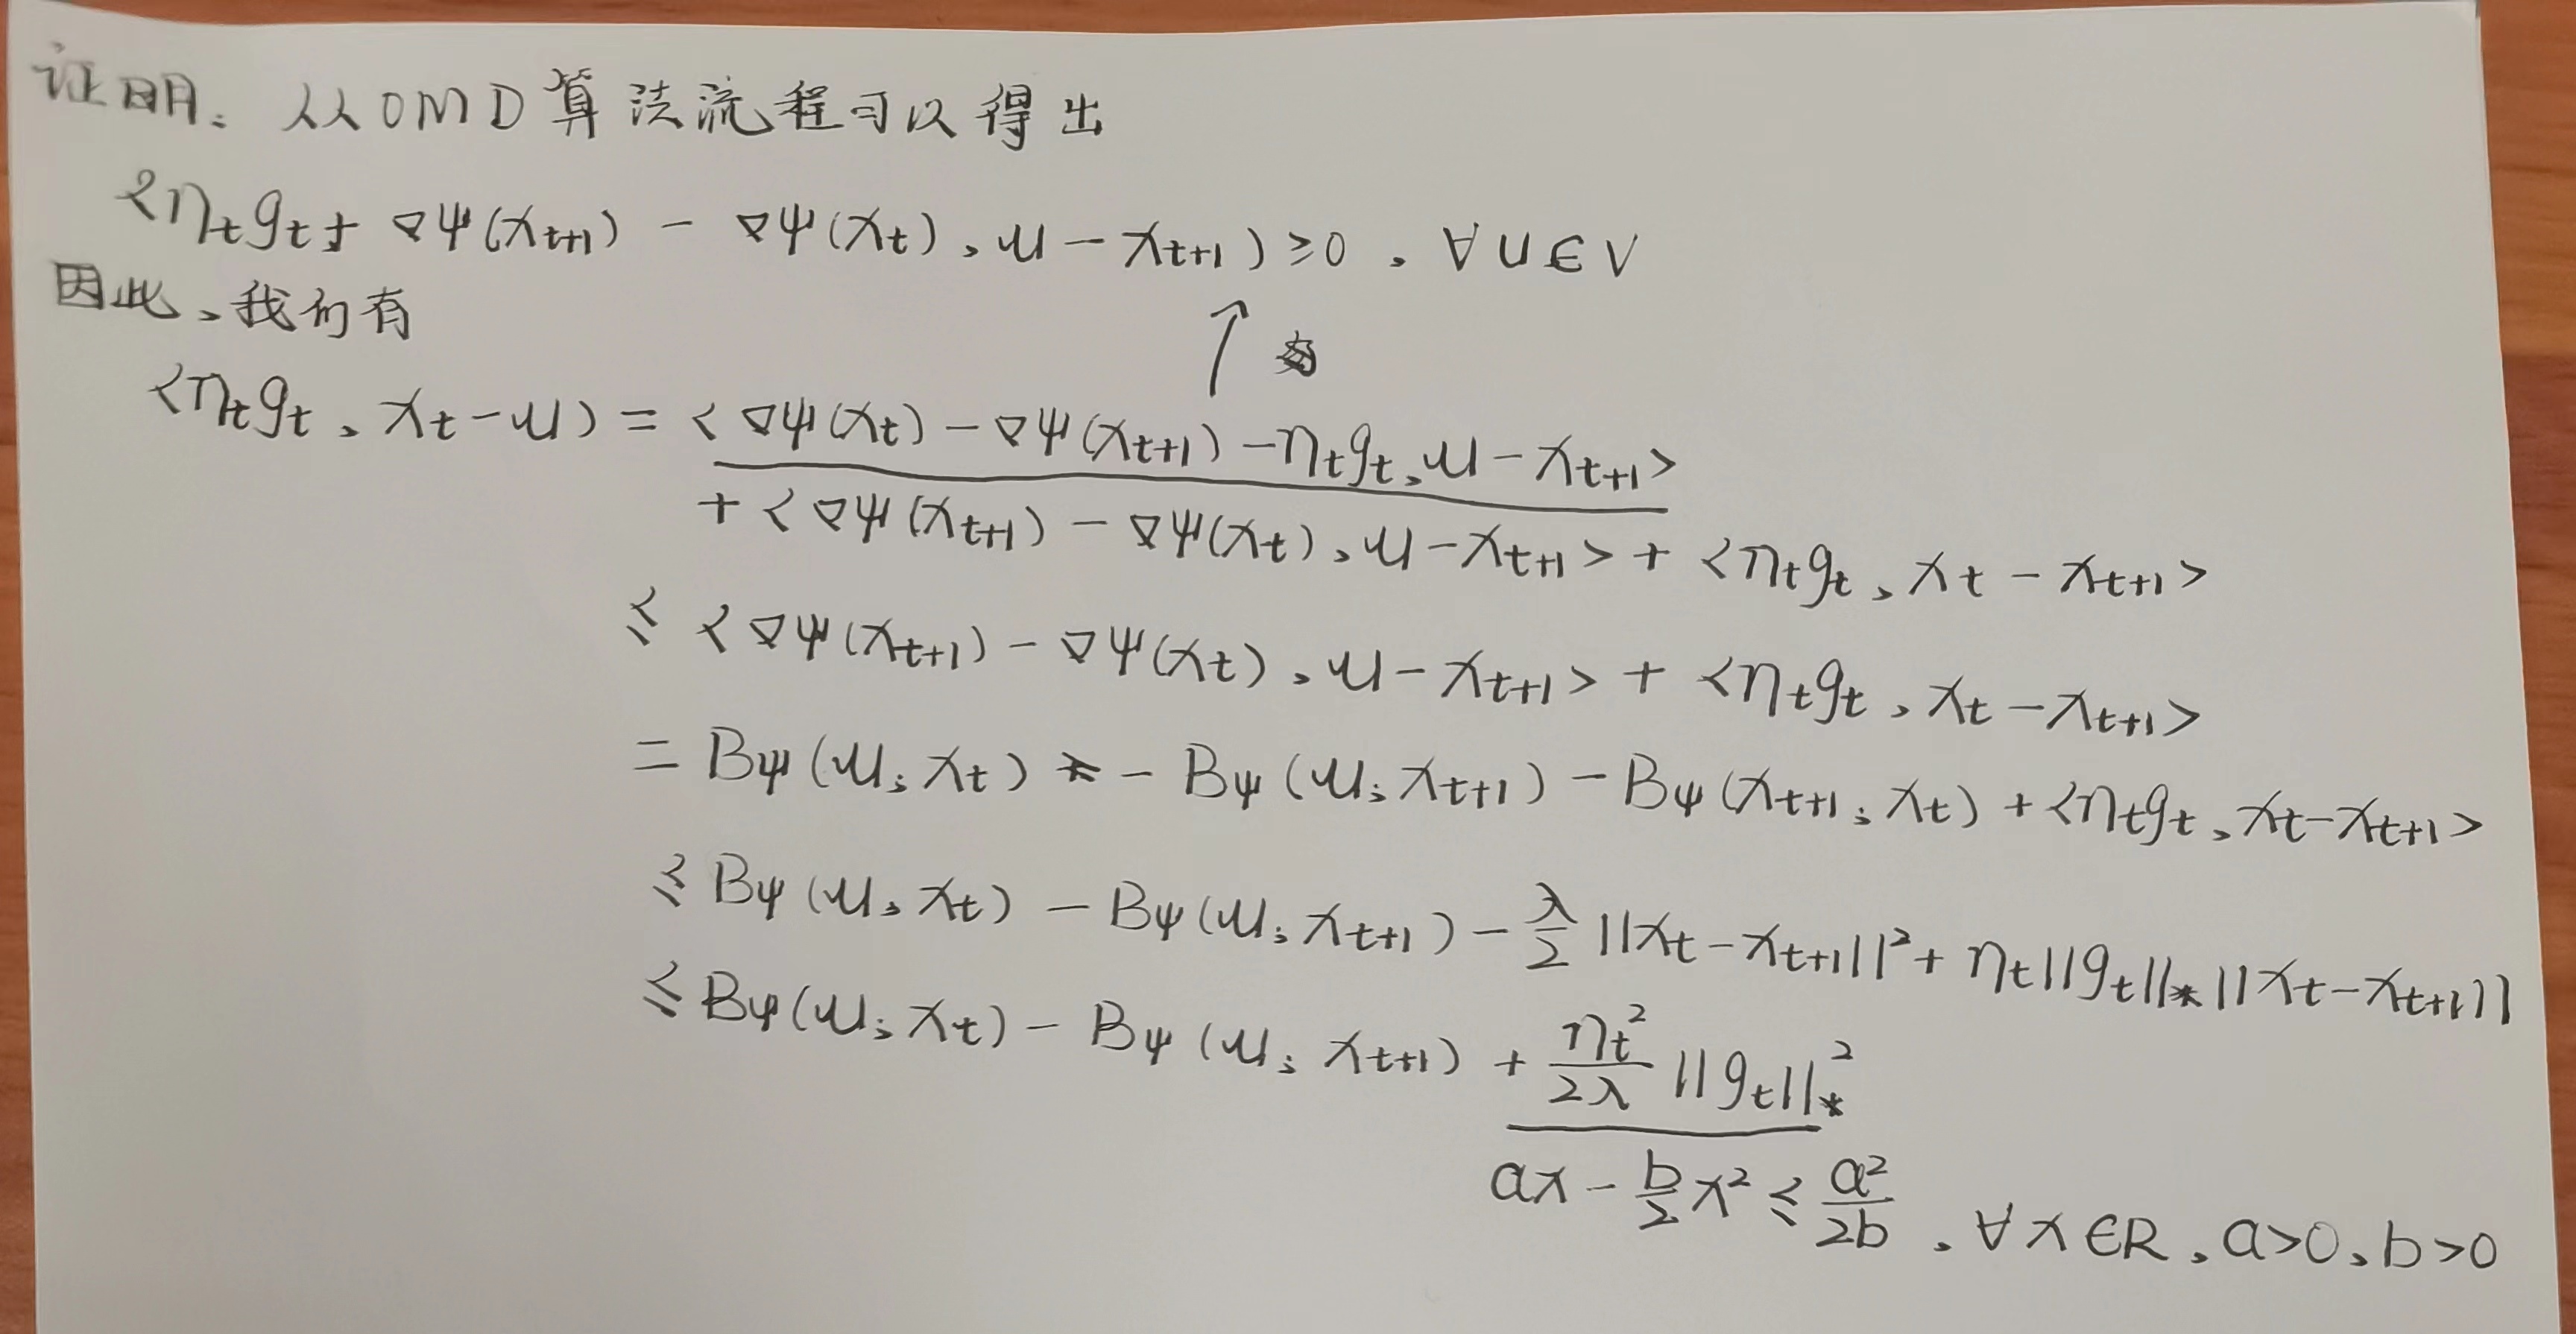 证明：从OMD算法流程可以得出
<η_t g_t + ∇ψ(x_{t+1}) - ∇ψ(x_t), u - x_{t+1}) ≥ 0, ∀u∈V
因此、我们有
<η_t g_t, x_t - u) = <∇ψ(x_t) - ∇ψ(x_{t+1}) - η_t g_t, u - x_{t+1}>
+ <∇ψ(x_{t+1}) - ∇ψ(x_t), u - x_{t+1}> + <η_t g_t, x_t - x_{t+1}>
≤ <∇ψ(x_{t+1}) - ∇ψ(x_t), u - x_{t+1}> + <η_t g_t, x_t - x_{t+1}>
= B_ψ(u; x_t) - B_ψ(u; x_{t+1}) - B_ψ(x_{t+1}; x_t) + <η_t g_t, x_t - x_{t+1}>
≤ B_ψ(u, x_t) - B_ψ(u; x_{t+1}) - λ/2 ||x_t - x_{t+1}||² + η_t ||g_t||_* ||x_t - x_{t+1}||
≤ B_ψ(u; x_t) - B_ψ(u; x_{t+1}) + η_t²/2λ ||g_t||_*²
ax - b/2 x² ≤ a²/2b, ∀x∈R, a>0, b>0